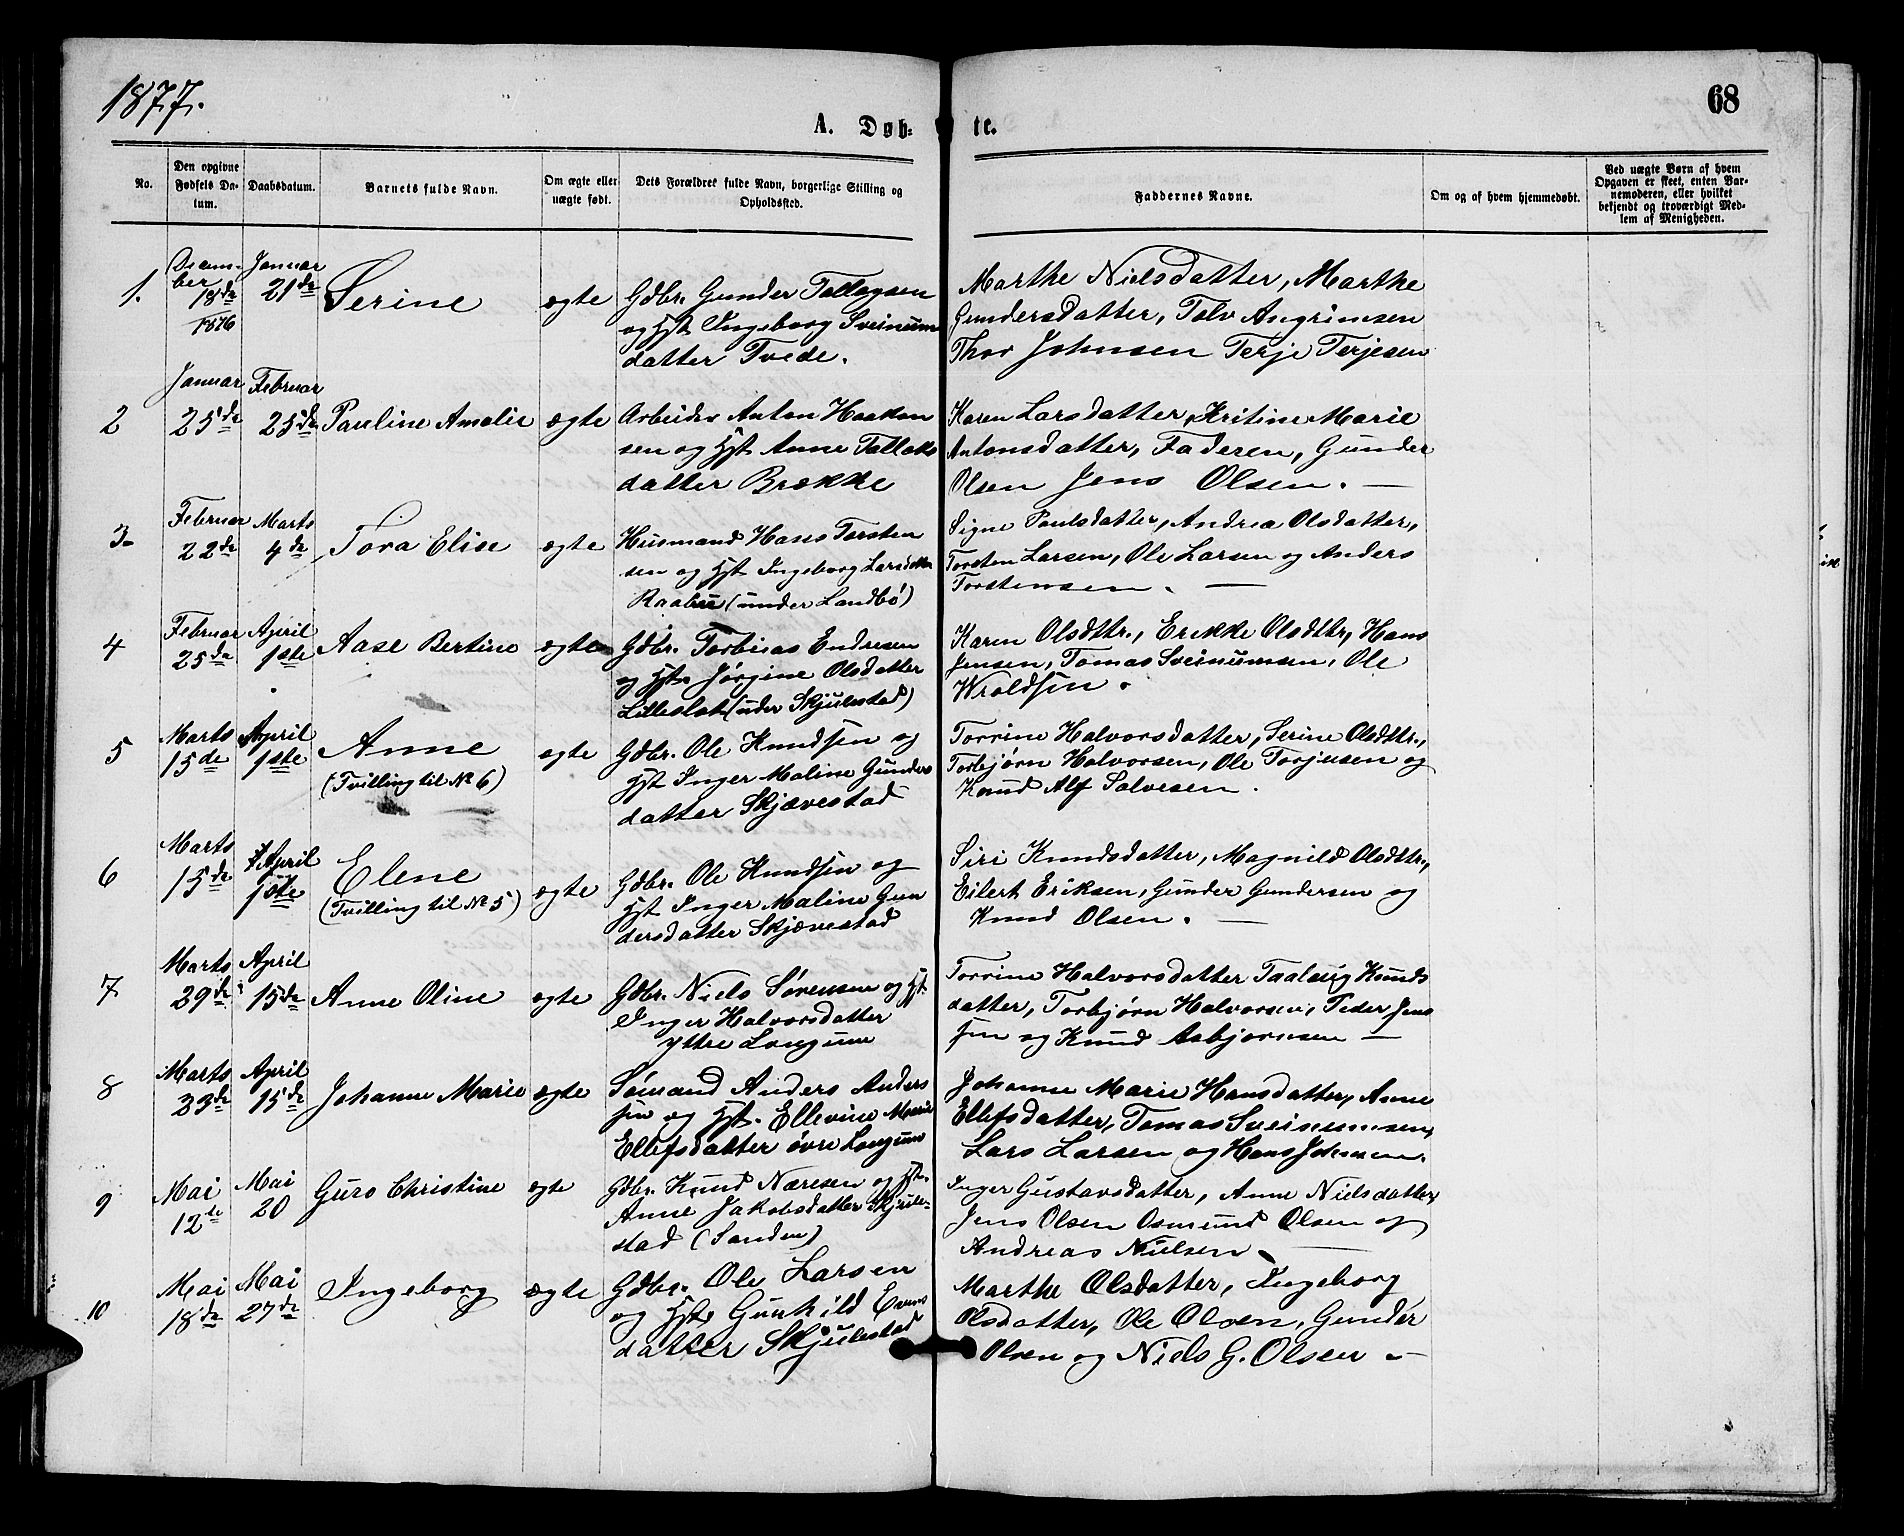 1877.
68
A. Døb- te.
No.
Den opgivne Fødsels Da- tum.
Daabsdatum.
Barnets fulde Navn.
Om ægte eller uægte født.
Dets Forældres fulde Navn, borgerlige Stilling og Opholdssted.
Faddernes Navne.
Om og af hvem hjemmedøbt.
Ved uægte Børn af hvem Opgaven er skeet, enten Bar- nemoderen, eller hvilket bekjendt og troværdigt Med- lem af Menigheden.
1. Decem- ber 18de 1876 Januar 21de Serine ægte
Gdbr. Gunder Tallagsen
og Hst Ingeborg Sveinum
datter Tvede.
Marthe Nielsdatter, Marthe
Gundersdatter, Talv Angrimsen
Thor Johnsen Terje Terjesen
2 Januar 25de Februar 25de Pauline Amalie ægte
Arbeider Anton Haakon
sen og Hst Anne Talleks
datter Brække
Karen Larsdatter, Kritine Marie
Antonsdatter, Faderen, Gunder
Olsen Jens Olsen. —
3. Februar 22de Marts 4de Tora Elise ægte
Husmand Hans Torsten
sen og Hst Ingeborg Larsdatter
Raabu (under Landbö)
Signe Paulsdatter, Andrea Olsdatter,
Torsten Larsen, Ole Larsen og Anders
Torstensen. —
4 Februar 25de April 1ste Aase Bertine ægte
Gdbr. Torbiras Endresen
og Hst. Jörgine Olsdatter
Lilleslot (uder Skjulestad)
Karen Olsdttr., Erikke Olsdttr, Hans
Jensen, Tomas Sveinumsen, Ole
Wroldsen.
5 Marts 15de April 1ste Anne ægte
(Tvilling til No 6)
Gdbr. Ole Knudsen og
Hst Inger Maline Gunders
datter Skjævestad
Torrine Halvorsdatter, Serine Olsdttr.,
Torbjørn Halvorsen, Ole Torjusen og
Knud Alf Salvesen.
6 Marts 15de April 1ste Elene ægte
(Tvilling til No 5)
Gdbr. Ole Knudsen og
Hst Inger Maline Gun
dersdatter Skjævestad
Siri Knudsdatter, Magnild Olsdttr.,
Eilert Eriksen, Gunder Gundersen og
Knud Olsen. —
7 Marts 29de April 15de Anne Oline ægte
Gdbr. Niels Sørensen og Hst.
Inger Halvorsdatter
yttre Longum
Torrine Halvorsdatter Taalaug Knuds
datter, Torbjørn Halvorsen, Peder Jens
sen og Knud Asbjørnsen —
8 Marts 23de April 15de Johanne Marie ægte
Sömand Anders Anders
sen og Hst. Ellevine Marie
Ellefsdatter övre Longum
Johanne Marie Hansdatter, Anne
Ellefsdatter, Tomas Sveinumsen,
Lars Larsen og Hans Johnsen.
9 Mai 12te Mai 20 Guro Christine ægte
Gdbr. Knud Næresen og Hst.
Anne Jakobsdatter Skjule-
stad (Sanden)
Inger Gustavsdatter, Anne Nielsdatter,
Jens Olsen Osmund Olsen og
Andreas Nielsen. —
10 Mai 18de Mai 27de Ingeborg ægte
Gdbr. Ole Larsen
og Hst. Gunhild Evens
datter Skjulestad
Marthe Olsdatter, Ingeborg
Olsdatter, Ole Olsen, Gunder
Olsen og Niels G. Olsen —